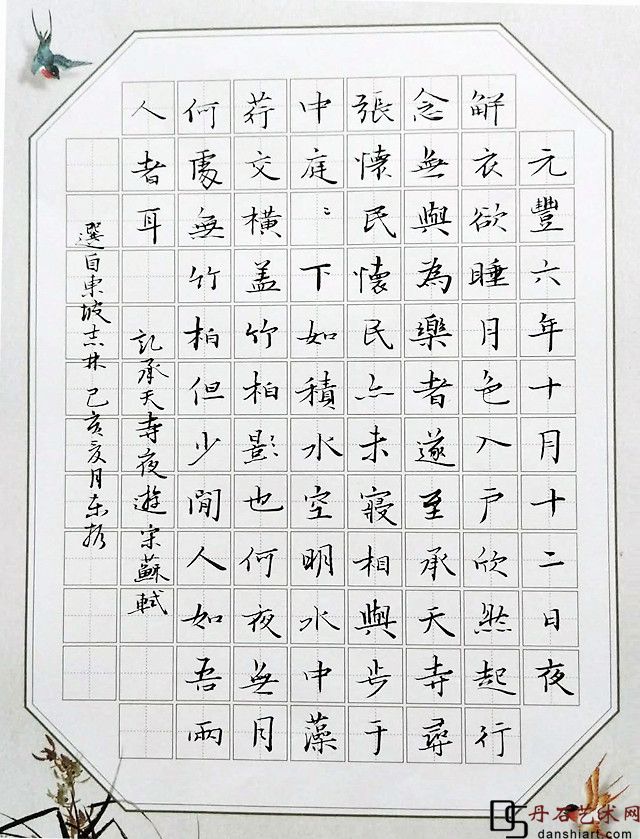 元豐六年十月十二日夜
解衣欲睡月色入戶欣然起行
念無與為樂者遂至承天寺尋
張懷民懷民亦未寢相與步于
中庭〻下如積水空明水中藻
荇交橫盖竹柏影也何夜無月
何處無竹柏但少閒人如吾兩
人者耳 記承天寺夜遊 宋蘇軾
選自東坡志林 己亥夏月
丹石艺术网
danshiart.com